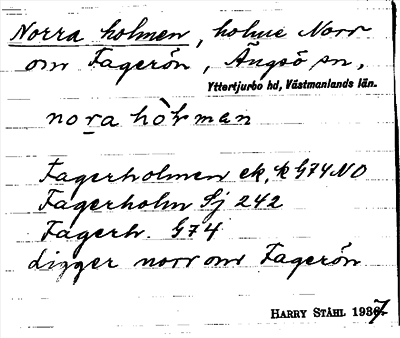 Norra holmen, holme Norr
om Fagerön, Ängsö sn,
Yttertjurbo hd, Västmanlands län.
nora hòlman
Fagerholmen ek, k G74 NO
Fagerholm Sj 242
Fagerh. G74
ligger norr om Fagerön
HARRY STÅHL 1937